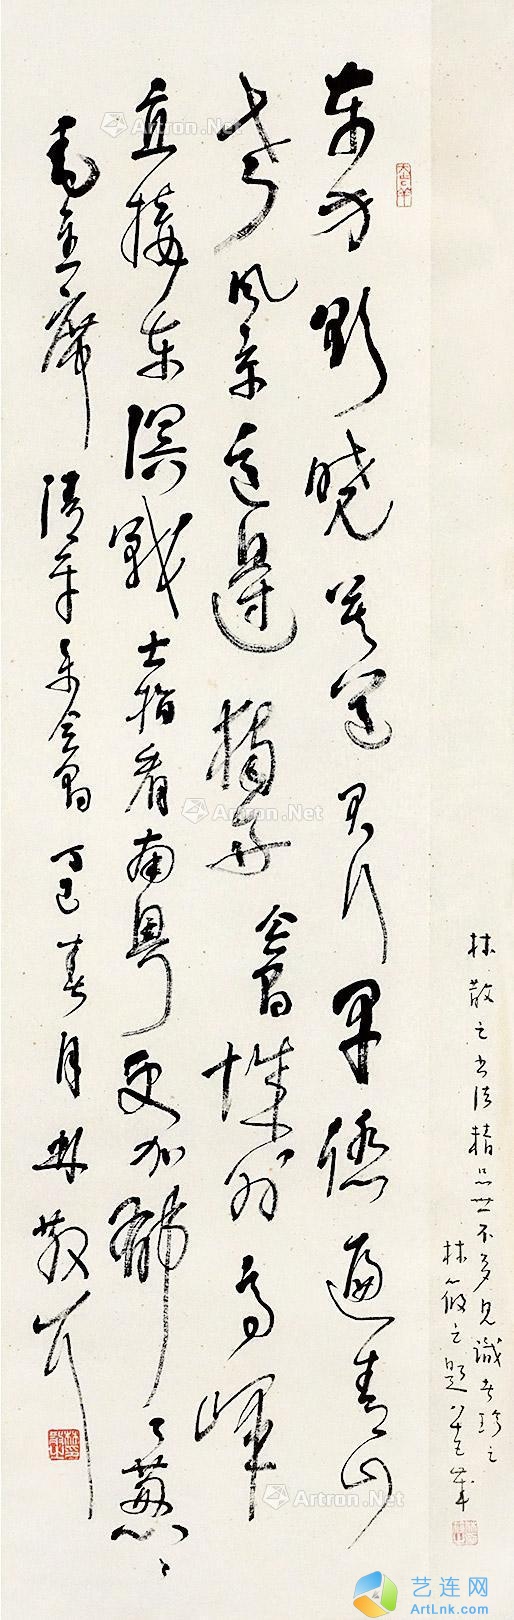 东方欲晓莫道君行早踏遍青山
老风景这边独好会昌城外高峰
直接东溟战士指看南粤更加郁々葱々
毛主席清平乐会昌 丁巳春月林散耳
大吉羊
林散之书法精品世不多见识者珍之
林筱之题
Artron.Net
Artron.Net
Artron.Net
Artron.Net
Artron.Net
Artron.Net
艺连网
ArtLnk.com